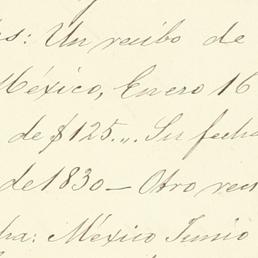 s: Un recibo de
México, Enero 16
de $125.,. Su fecha
de 1830— Otro reci
ha: México Junio